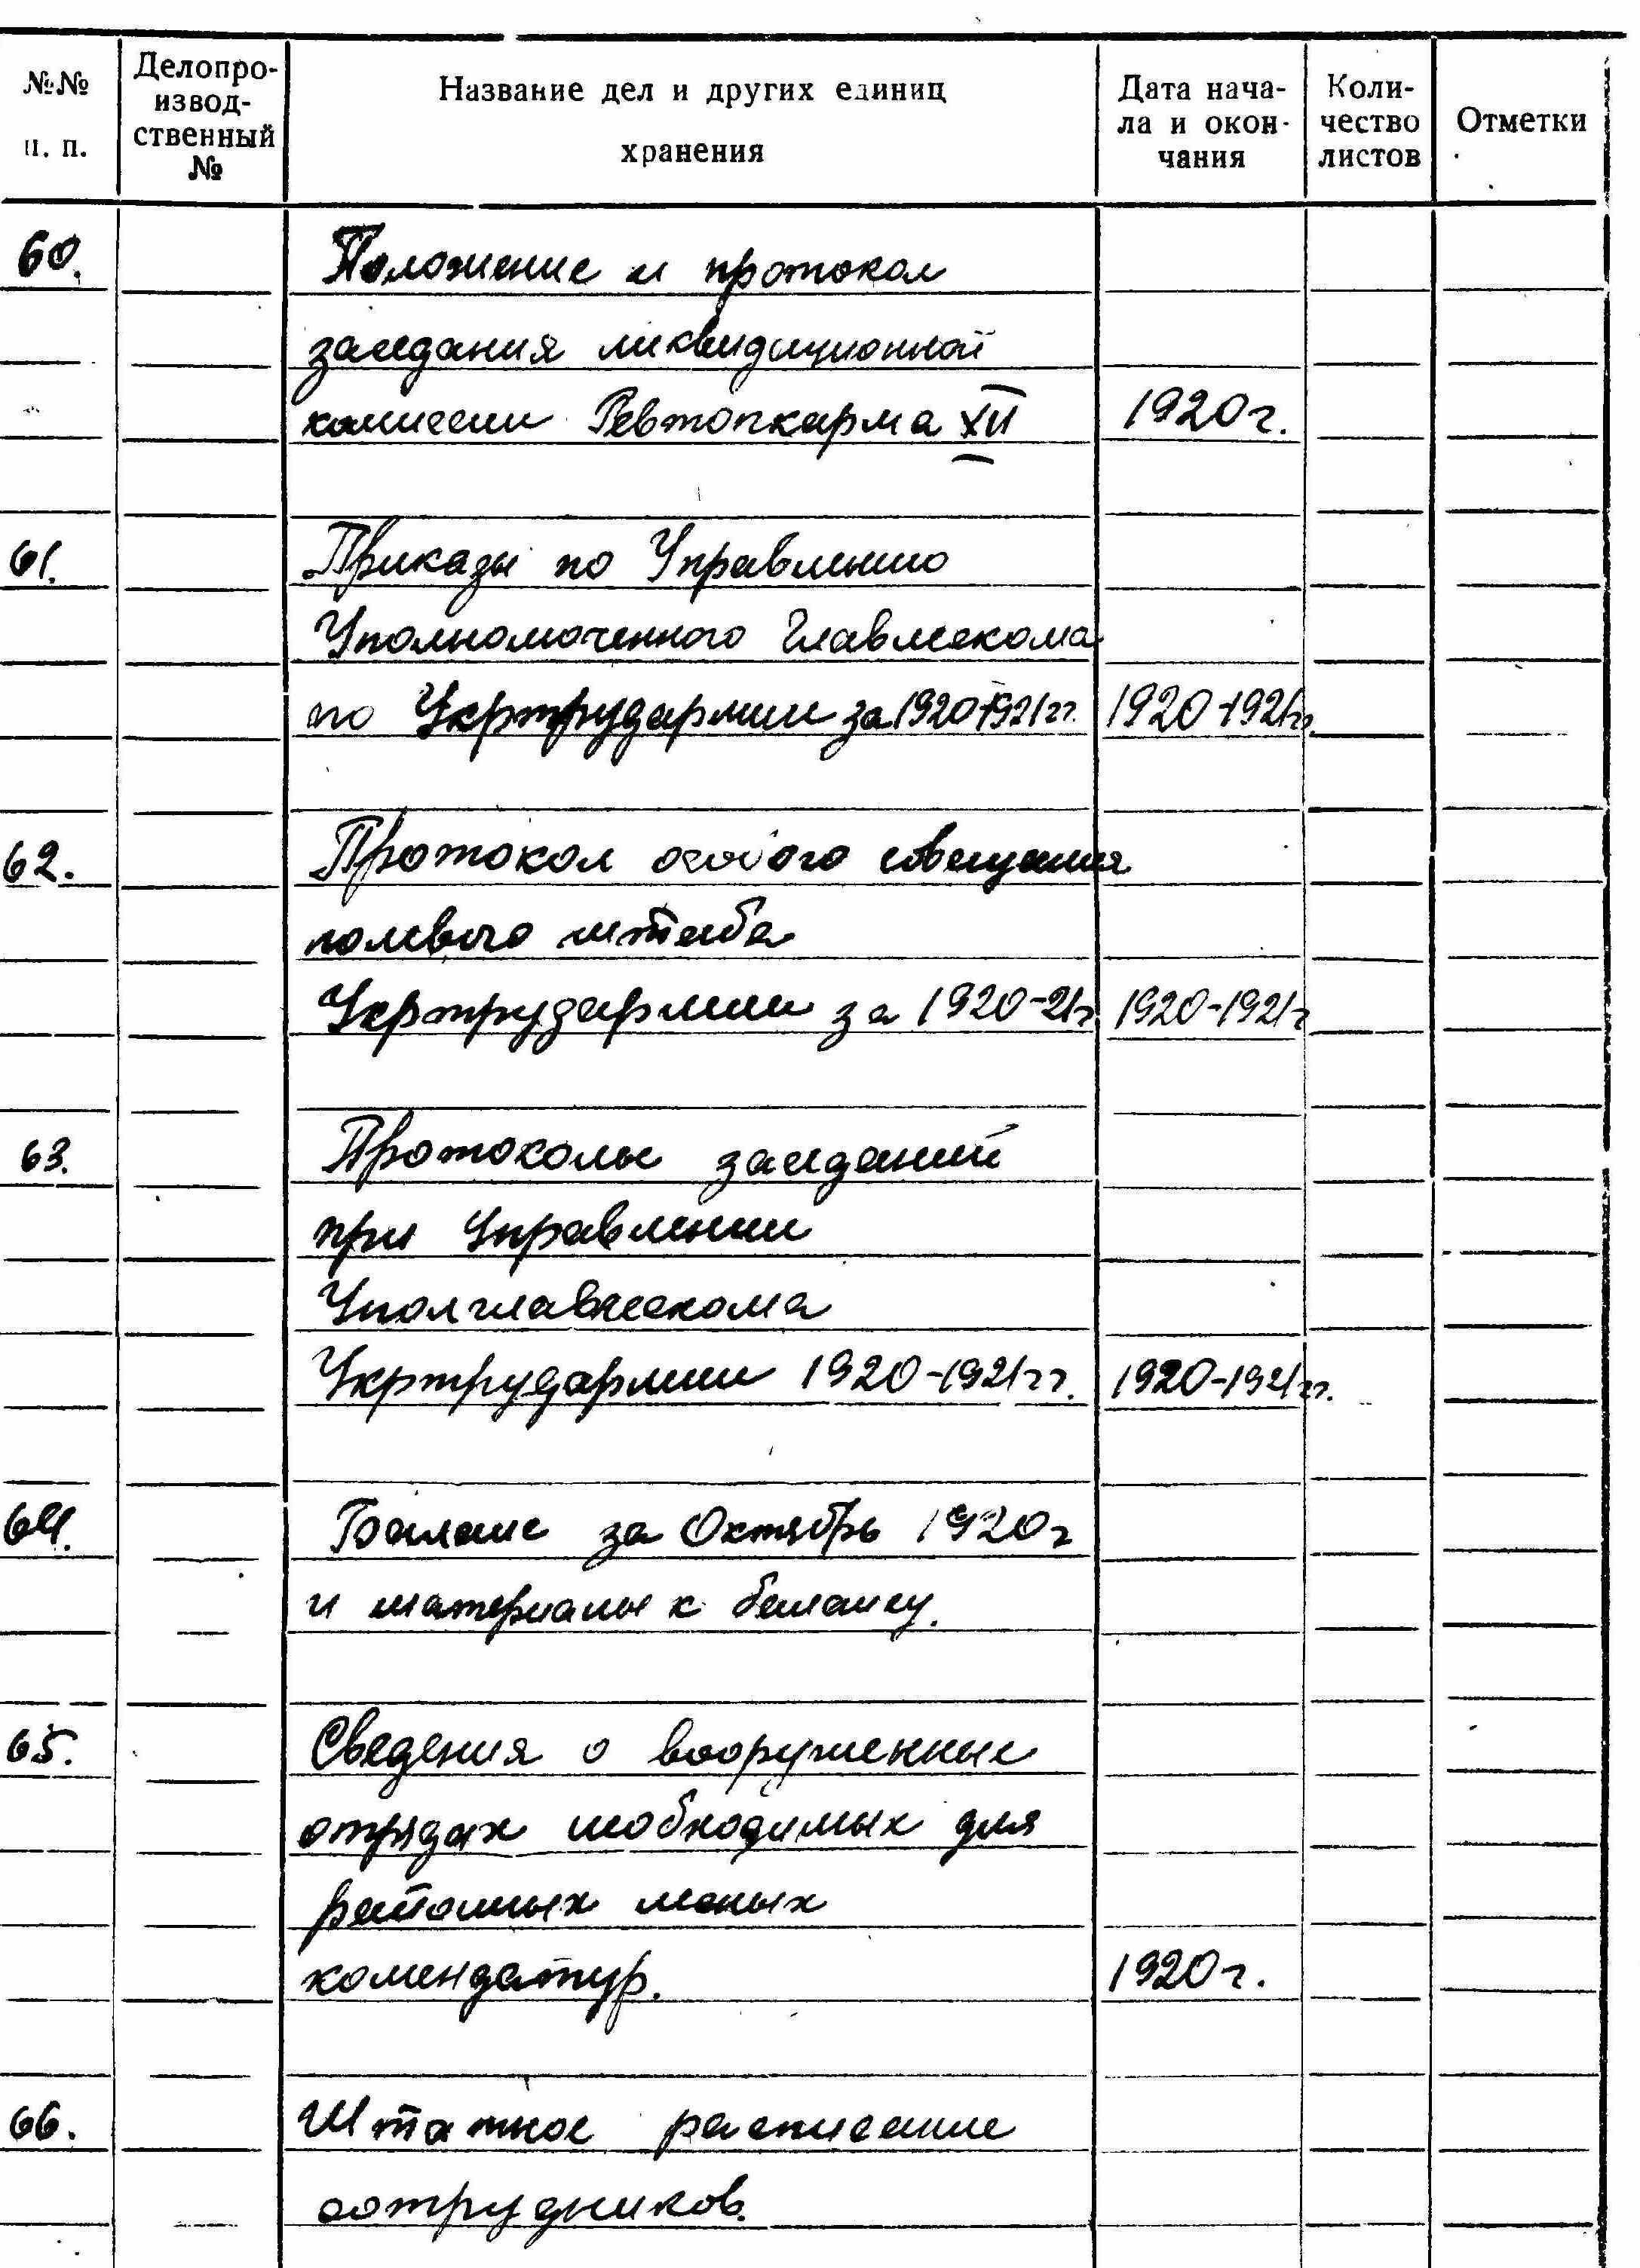 №№ п. п.
Делопро-
извод-
ственный
№
Название дел и других единиц
хранения
Дата нача-
ла и окон-
чания
Коли-
чество
листов
Отметки
60.
Положение и протокол
заседания ликвидационной
комиссии Ревтопкарма XII
1920 г.
61.
Приказы по Управлению
Уполномоченного Главлескома
по Укртрудармии за 1920-1921 гг.
1920-1921 гг.
62.
Протокол особого совещания
полевого штаба
Укртрудармии за 1920-21 г.
1920-1921 г
63.
Протоколы заседаний
при Управлении
Уполглавлескома
Укртрудармии 1920-1921 гг.
1920-1921 гг.
64.
Баланс за Октябрь 1920 г
и материалы к балансу.
65.
Сведения о вооруженные
отрядах необходимых для
районных лесных
комендатур.
1920 г.
66.
Штатное расписание
сотрудников.